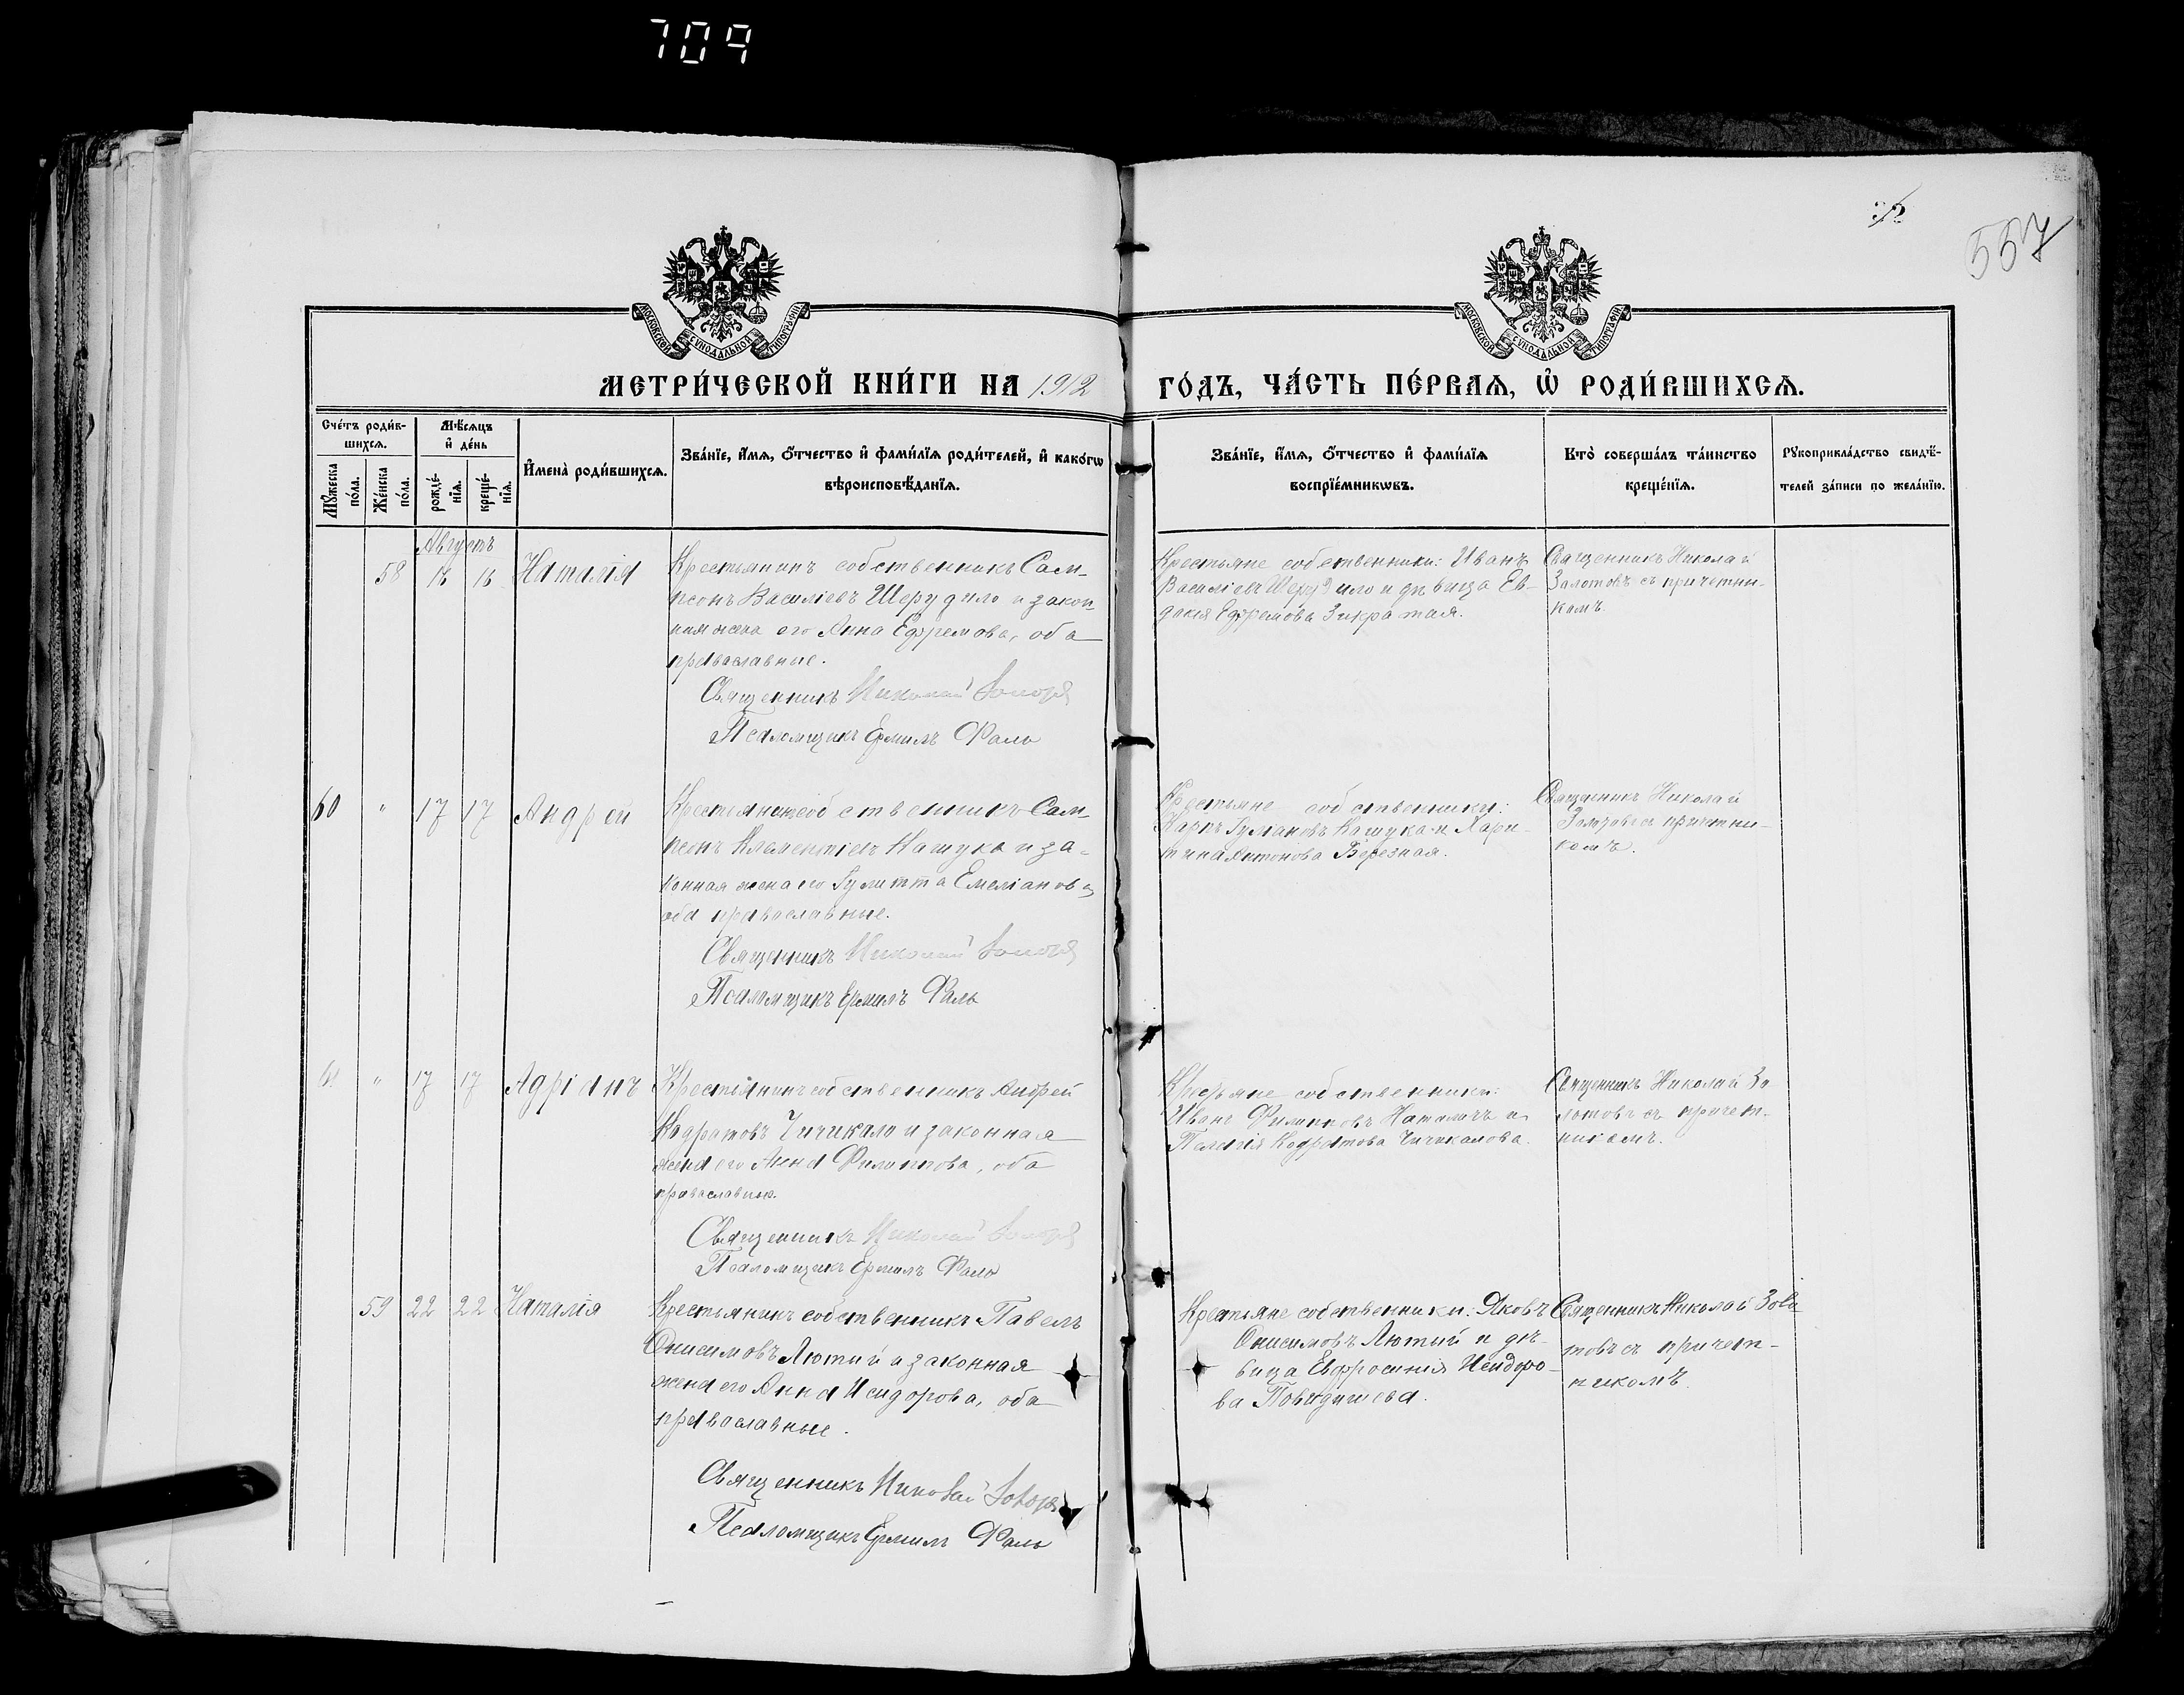 709
32
557
МОСКОВСКОЙ СѴНОДАЛЬНОЙ ТИПОГРАФІИ
МОСКОВСКОЙ СѴНОДАЛЬНОЙ ТИПОГРАФІИ
МЕТРИ́ЧЕСКОЙ КНИ́ГИ НА 1912 ГО́ДЪ, ЧА́СТЬ ПЕ́РВАЯ, Ѡ҆ РОДИ́ВШИХСЯ.
Сче́тъ роди́в-
шихся.
Мꙋ́жеска
по́ла.
Же́нска
по́ла.
Мѣ́сяцъ
и҆ де́нь
рожде́-
нїя.
креще́-
нїя.
И҆мена̀ роди́вшихся.
Зва́нїе, и҆́мя, ѻ҆́тчество и҆ фами́лїя роди́телей, и҆ како́гѡ
вѣроисповѣ́данїя.
Зва́нїе, и҆́мя, ѻ҆́тчество и҆ фами́лїя
воспрїе́мникѡвъ.
Кто̀ соверша́лъ та́инство
креще́нїя.
Рꙋкоприкла́дство свидѣ́-
телей за́писи по жела́нїю.
Августъ
58 16 16 Наталія
Крестьянинъ собственникъ Сам-
псонъ Василіевъ Шерудило и закон-
ная жена его Анна Ефремова, оба
православные.
Священникъ Николай
Псаломщикъ Ермилъ Фаль
Крестьяне собственники: Иванъ
Василіевъ Шерудило и дѣвица Ев-
докія Ефремова Зикратая.
Священникъ Николай
Золотовъ съ причетни-
комъ.
60 " 17 17 Андрей
Крестьянинъ собственникъ Сам-
псонъ Климентіевъ Кашука и за-
конная жена его Іулитта Емеліанова,
оба православные.
Священникъ Николай
Псаломщикъ Ермилъ Фаль
Крестьяне собственники:
Карпъ Іуліановъ Кашука и Хари-
тина Антонова Березная.
Священникъ Николай
Золотовъ съ причетни-
комъ.
61 " 17 17 Адріанъ
Крестьянинъ собственникъ Андрей
Кодратовъ Чичикало и законная
жена его Анна Филиппова, оба
православные.
Священникъ Николай
Псаломщикъ Ермилъ Фаль
Крестьяне собственники:
Иванъ Филипповъ и
Пелагія Кодратова Чичикалова.
Священникъ Николай Зо-
лотовъ съ причет-
никомъ.
59 22 22 Наталія
Крестьянинъ собственникъ Павелъ
Онисимовъ Лютый и законная
жена его Анна Исидорова, оба
православные.
Священникъ Николай
Псаломщикъ Ермилъ Фаль
Крестьяне собственники: Яковъ
Онисимовъ Лютий и дѣ-
вица Евфросинія Исидоро-
ва
Священникъ Николай Золо-
товъ съ причет-
никомъ.